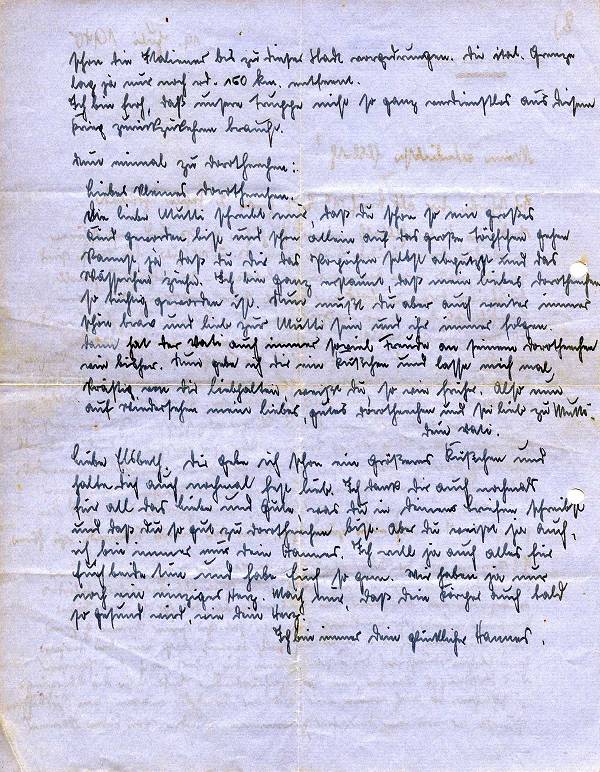 schon die Italiener bis zu dieser Stadt vorgedrungen. Die ital. Grenze
lag ja nur noch rd. 160 km. entfernt.
Ich bin froh, daß unsere Truppe nicht so ganz verdienstlos aus diesem
Krieg zurückzukehren braucht.
Nun einmal zu Dorotheechen:
Liebes kleines Dorotheechen.
Die liebe Mutti schreibt mir, daß du schon so ein großes
Kind geworden bist und schon allein auf das große Töpfchen gehen
kannst ja daß du dir das selbst abputzt und das
Wässerchen ziehst. Ich bin ganz erstaunt, daß mein liebes Dorotheechen
so tüchtig geworden ist. Nun mußt du aber auch weiter immer
schön brav und lieb zur Mutti sein und ihr immer folgen.
Dann hat der Vati auch immer soviel Freude an seinem Dorotheechen
wie bisher. Nun gebe ich dir ein Küßchen und lasse mich mal
kräftig von dir liebhalten weißt du, so wie früher. Also nun
auf Wiedersehen mein liebes, gutes Dorotheechen und sei lieb zu Mutti.
Dein Vati.
Liebe Elsbeth. Dir gebe ich schon ein größeres Küßchen und
halte dich auch nochmal fest lieb. Ich dank dir auch nochmals
für all das Liebe und Gute, was du in deinen Briefen schreibst
und daß du so gut zu Dorotheechen bist. Aber du weißt ja auch,
ich bin immer nur dein Hannes. Ich will ja auch alles für
Euch beide tun und habe Euch so gern. Wir haben ja nur
noch ein einziges Herz. Mach nur, daß dein Körper auch bald
so gesund wird, wie dein Herz.
Ich bin immer dein glücklicher Hannes.